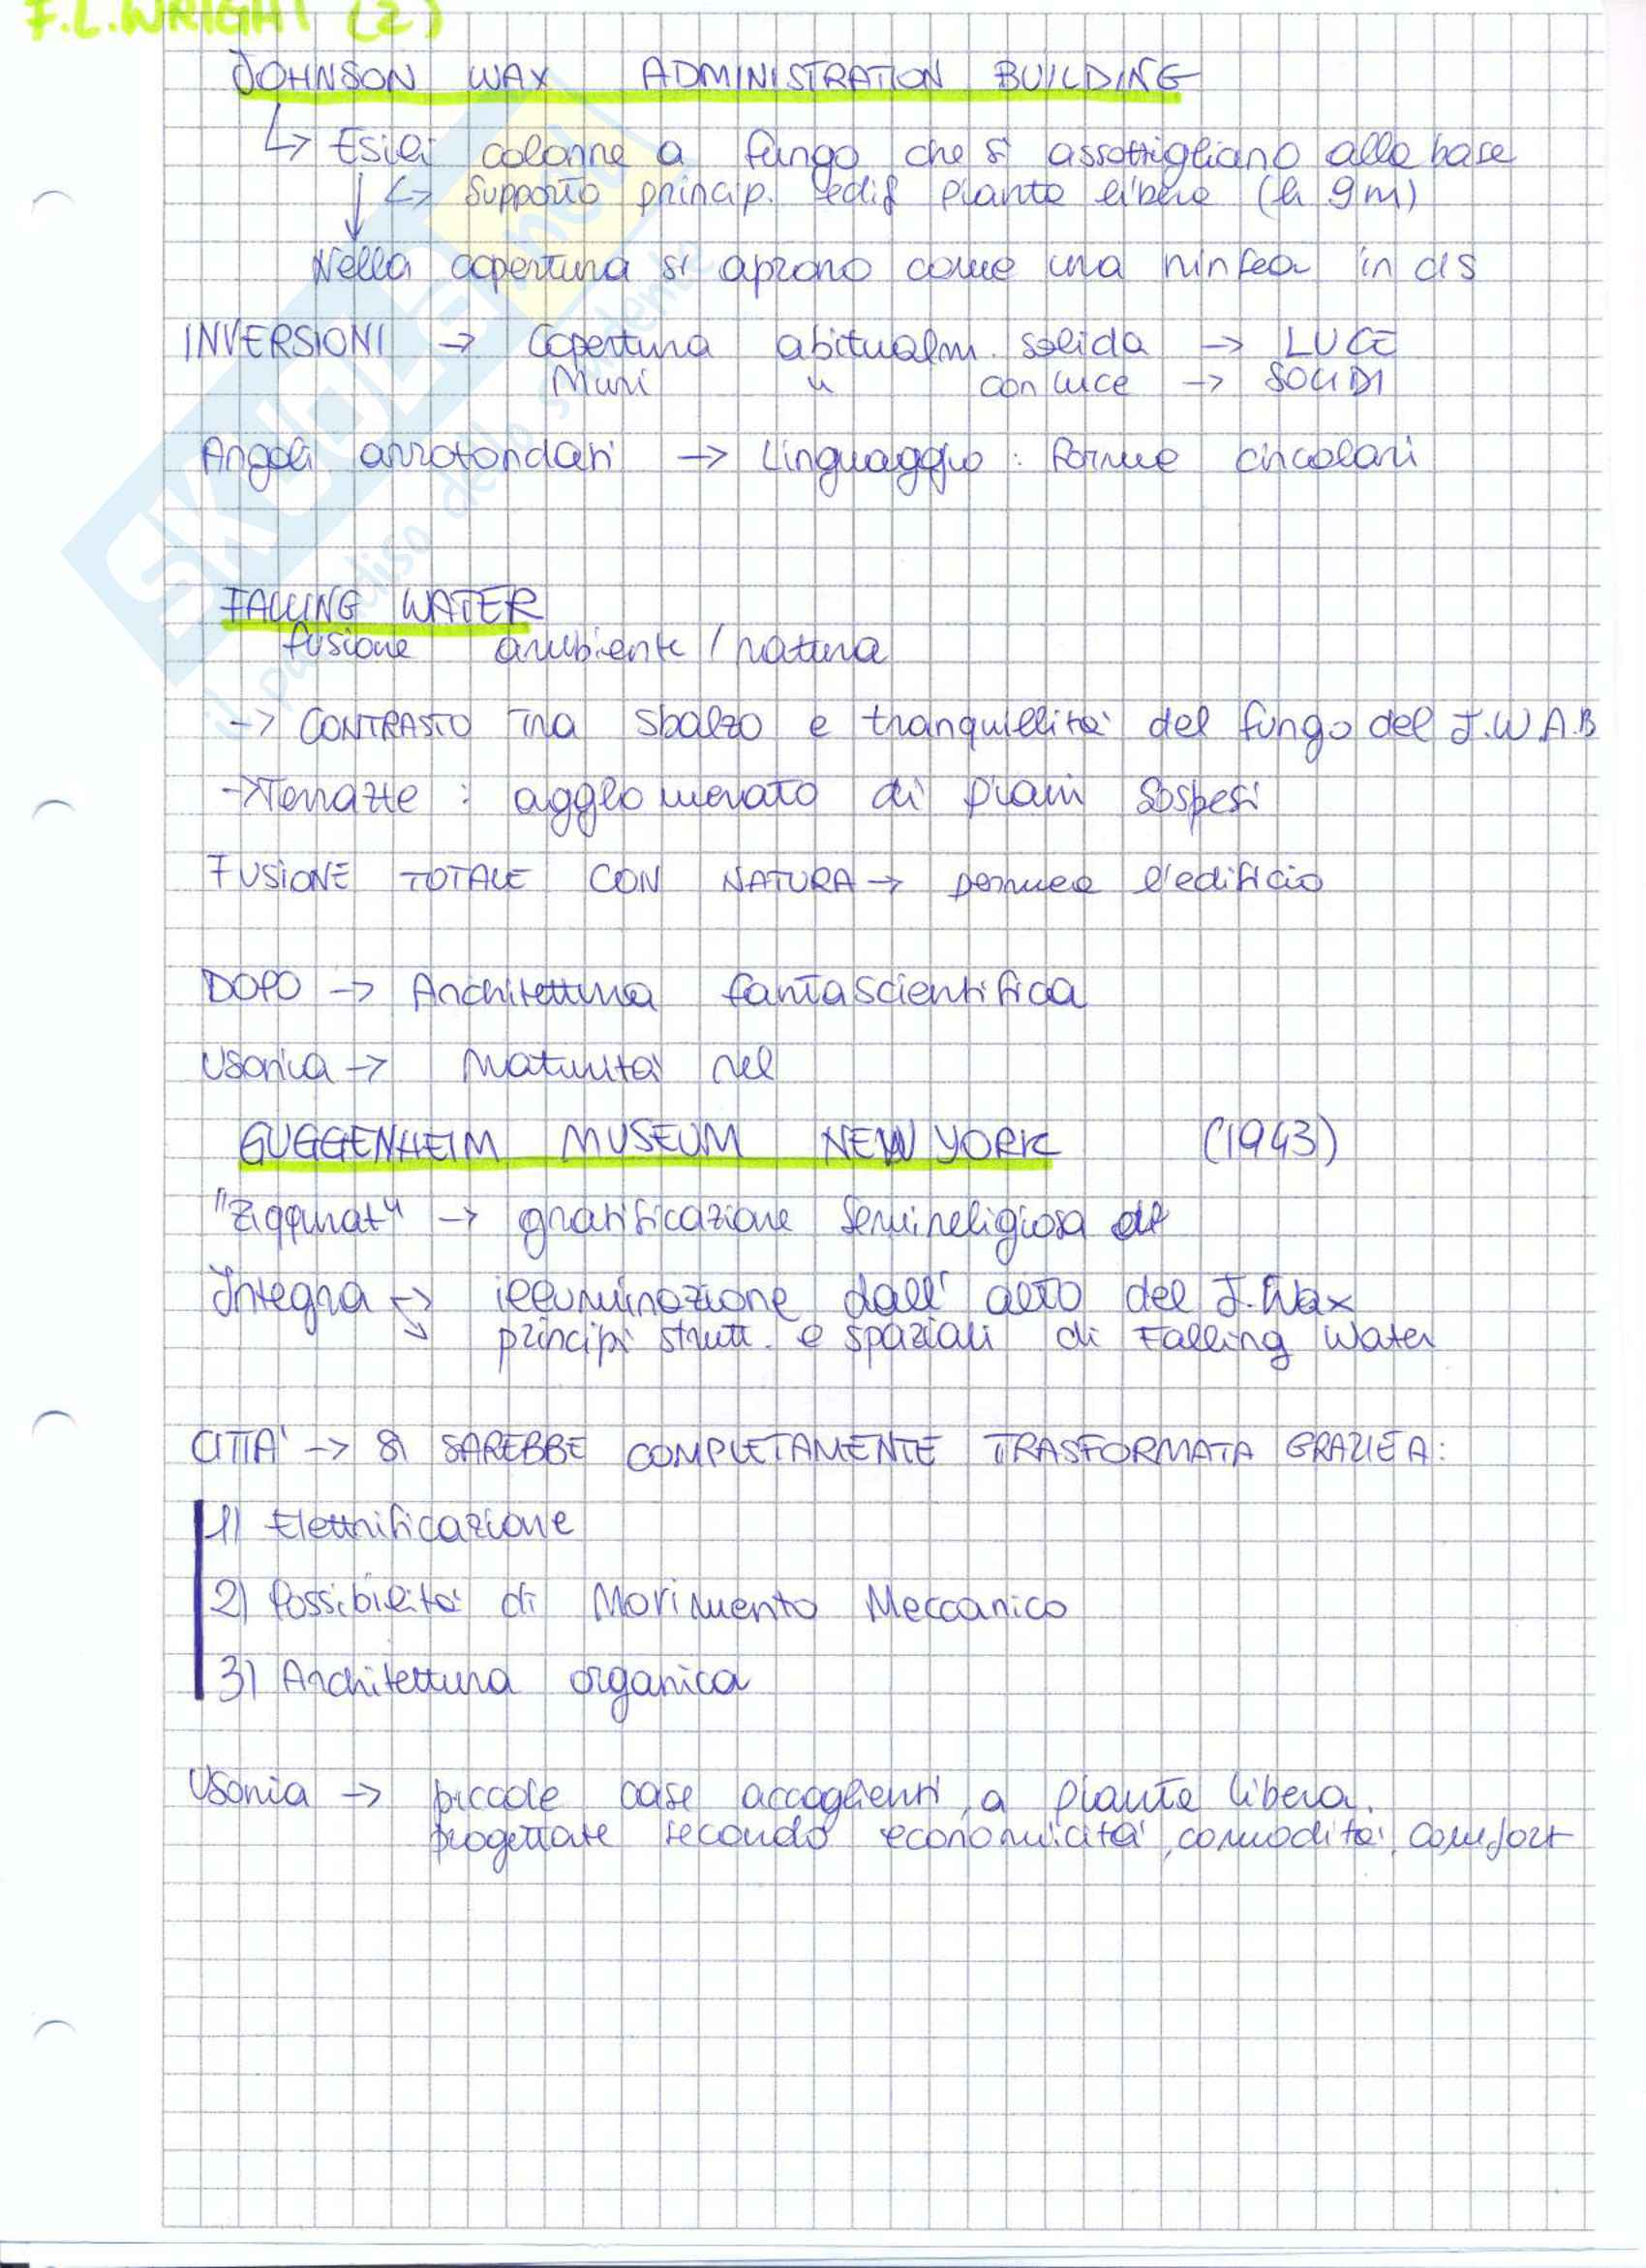 F.L.WRIGHT (2)
JOHNSON WAX ADMINISTRATION BUILDING
↳ Esili colonne a fungo che si assottigliano alla base
↳ Supporto princip. edif pianta libera (h 9m)
Nella copertura si aprono come una ninfea in cls
INVERSIONI → Copertura abitualm. solida → LUCE
Muri " con luce → SOLIDI
Angoli arrotondati → Linguaggio: Forme circolari
FALLING WATER
fusione ambiente / natura
-> CONTRASTO tra sbalzo e tranquillità del fungo del J.W.A.B
-> Terrazze : agglomerato di piani sospesi
FUSIONE TOTALE CON NATURA → permea l'edificio
DOPO → Architettura fantascientifica
Usonia → Maturità nel
GUGGENHEIM MUSEUM NEW YORK (1943)
"Ziggurat" → gratificazione semireligiosa
Integra → illuminazione dall'alto del J.Wax
↘ principi strutt. e spaziali di Falling Water
CITTA' → SI SAREBBE COMPLETAMENTE TRASFORMATA GRAZIE A:
1) Elettrificazione
2) Possibilità di Movimento Meccanico
3) Architettura organica
Usonia → piccole case accoglienti, a pianta libera.
progettate secondo economicità, comodità, comfort
SKUOLA.net
il paradiso dello studente